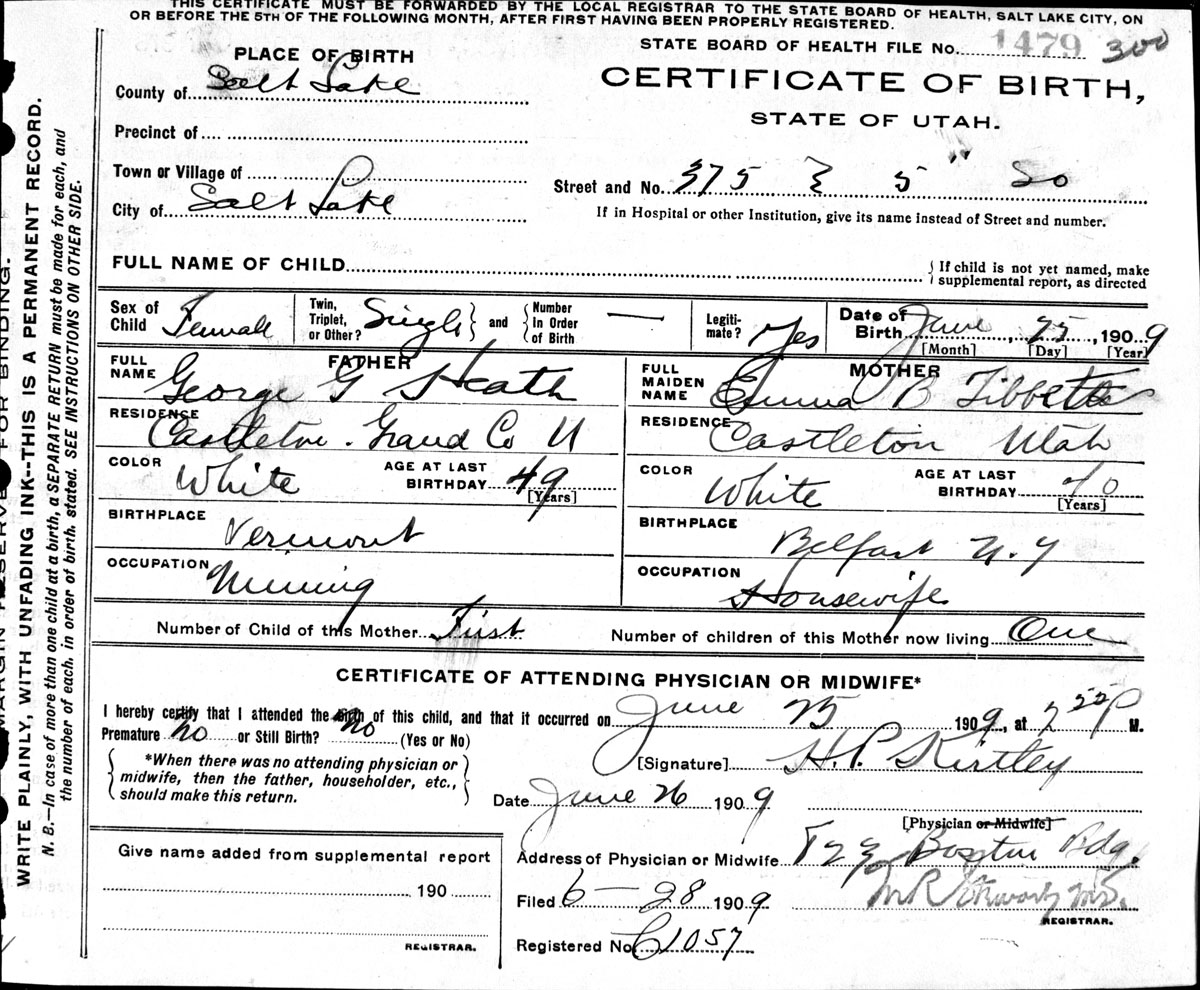 THIS CERTIFICATE MUST BE FORWARDED BY THE LOCAL REGISTRAR TO THE STATE BOARD OF HEALTH, SALT LAKE CITY, ON
OR BEFORE THE 5TH OF THE FOLLOWING MONTH, AFTER FIRST HAVING BEEN PROPERLY REGISTERED.
MARGIN RESERVED FOR BINDING.
WRITE PLAINLY, WITH UNFADING INK--THIS IS A PERMANENT RECORD.
N. B.—In case of more than one child at a birth, a SEPARATE RETURN must be made for each, and
the number of each, in order of birth, stated. SEE INSTRUCTIONS ON OTHER SIDE.
STATE BOARD OF HEALTH FILE No. 1479 300
PLACE OF BIRTH
CERTIFICATE OF BIRTH,
STATE OF UTAH.
County of Salt Lake
Precinct of
Town or Village of
City of Salt Lake
Street and No. 375 E 5" So
If in Hospital or other Institution, give its name instead of Street and number.
FULL NAME OF CHILD
If child is not yet named, make
supplemental report, as directed
Sex of Child Female
Twin, Triplet, or Other? Single
and Number In Order of Birth —
Legiti-mate? Yes
Date of Birth June 25, 1909
[Month] [Day] [Year]
FATHER
FULL NAME George G Heath
RESIDENCE Castleton. Grand Co U
COLOR White
AGE AT LAST BIRTHDAY 49
[Years]
BIRTHPLACE Vermont
OCCUPATION Mining
MOTHER
FULL MAIDEN NAME Emma B Tibbetts
RESIDENCE Castleton Utah
COLOR White
AGE AT LAST BIRTHDAY 40
[Years]
BIRTHPLACE Belfast N. Y
OCCUPATION Housewife
Number of Child of this Mother First
Number of children of this Mother now living One
CERTIFICATE OF ATTENDING PHYSICIAN OR MIDWIFE*
I hereby certify that I attended the birth of this child, and that it occurred on June 25 1909, at 7 55 P M.
Premature No or Still Birth? No (Yes or No)
*When there was no attending physician or
midwife, then the father, householder, etc.,
should make this return.
[Signature] H. P. Kirtley
Date June 26 1909
[Physician or Midwife]
Give name added from supplemental report
190
REGISTRAR.
Address of Physician or Midwife Boston Bdg.
Filed 6 — 28 1909
M R Stewart M.D.
REGISTRAR.
Registered No. C1057